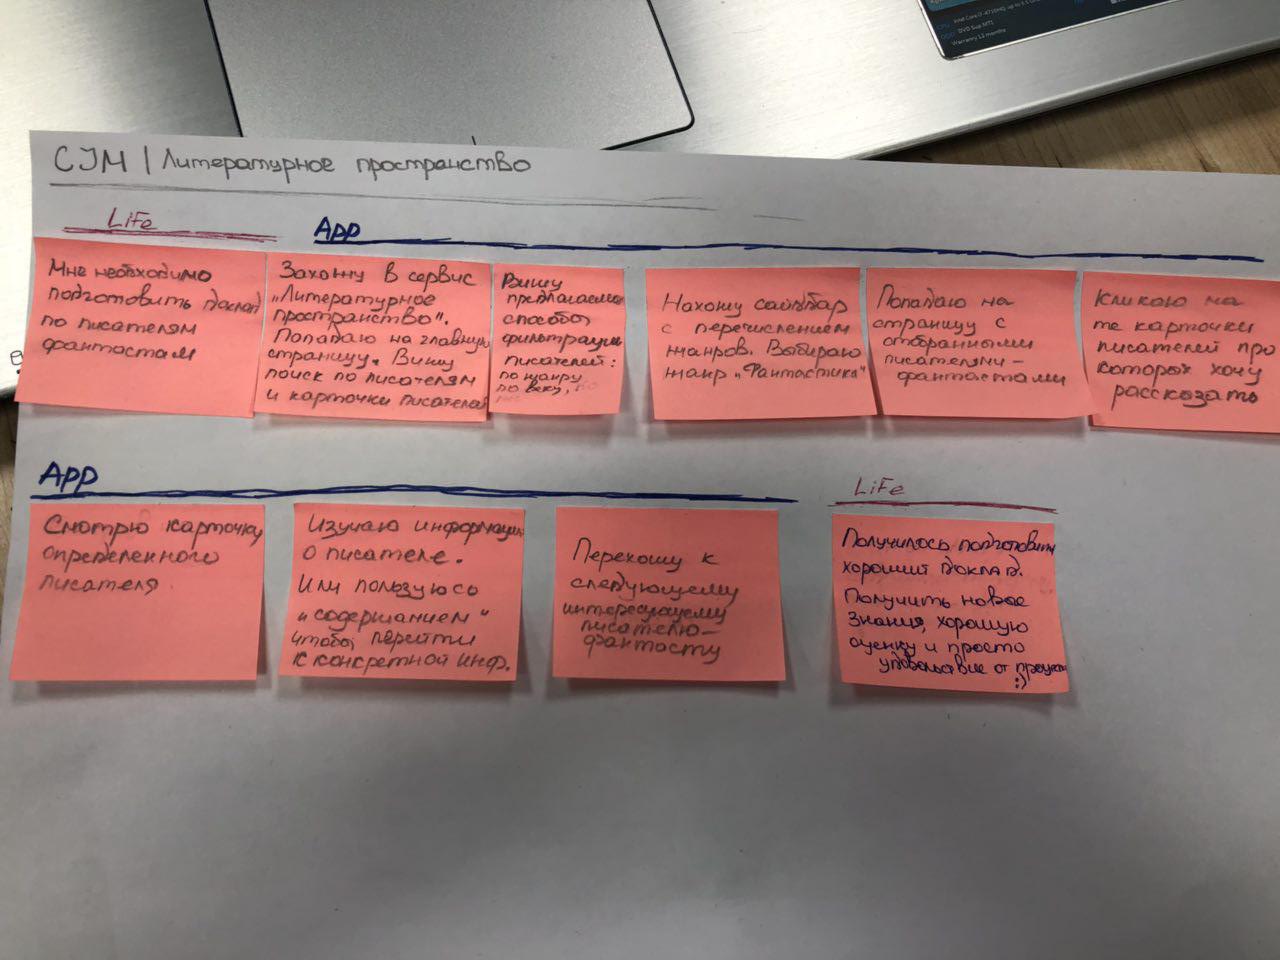 CJM | Литературное пространство
Life
App
Мне необходимо
подготовить доклад
по писателям
фантастам
Захожу в сервис
„Литературное
пространство".
Попадаю на главную
страницу. Вижу
поиск по писателям
и карточки писателей
Вижу
предлагаемые
способы
фильтрации
писателей:
по жанру
по веку,
Нахожу сайдбар
с перечислением
жанров. Выбираю
жанр „Фантастика"
Попадаю на
страницу с
отобранными
писателями-
фантастами
Кликаю на
те карточки
писателей про
которых хочу
рассказать
App
Смотрю карточку
определенного
писателя
Изучаю информацию
о писателе.
Или пользуюсь
„содержанием"
чтобы перейти
к конкретной инф.
Перехожу к
следующему
интересующему
писателю-
фантасту
Life
Получилось подготовить
хороший доклад.
Получить новое
знания, хорошую
оценку и просто
удовольствие от процесса
:)
Intel Core i7-4710HQ, up to 3.5
DVD Sup.MTI
Warranty 12 months